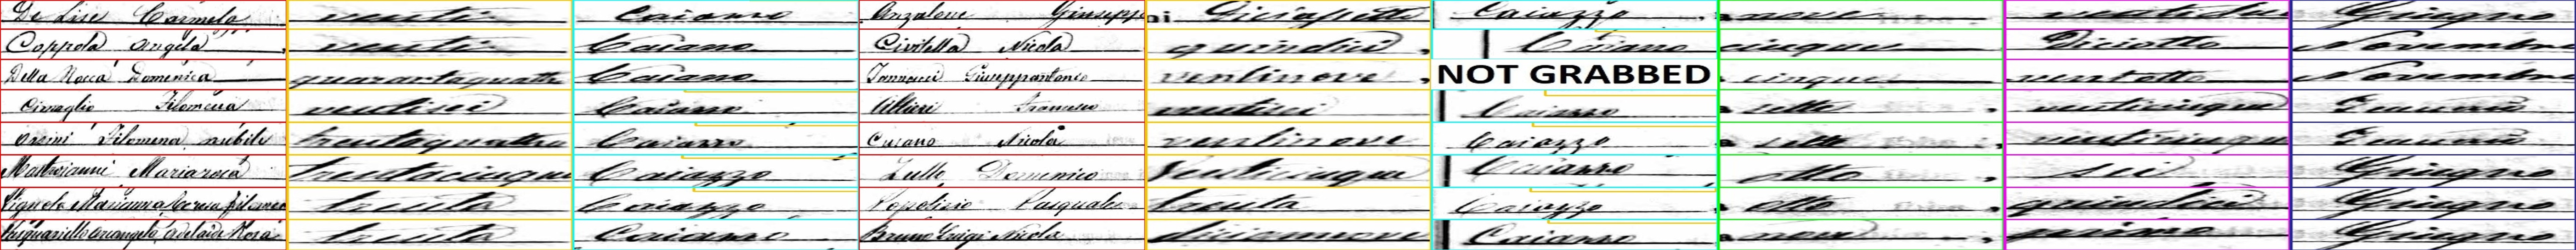 De Lise Carmela venti Caiazzo Anzalone Giuseppe Caiazzo nove ventidue Giugno
Coppola Angela venti Caiazzo Civitella Nicola quindici Caiazzo cinque Diciotto Novembre
Della Rocca Domenica quarantaquattro Caiazzo Iannucci Giuseppantonio ventinove NOT GRABBED cinque ventotto Novembre
Filomena ventisei Caiazzo Altieri Francesco ventisei Caiazzo sette venticinque Gennaio
Orsini Filomena nubile trentaquattro Caiazzo Cusano Nicola ventinove Caiazzo sette venticinque Gennaio
Mastroianni Mariarosa trentacinque Caiazzo Zullo Domenico Venticinque Caiazzo otto sei Giugno
Marianna Teresa Filomena trenta Caiazzo Pasquale trenta Caiazzo otto quindici Giugno
Pasquariello Arcangela Adelaide Rosa trenta Caiazzo Bruno Luigi Nicola diciannove Caiazzo nove primo Giugno